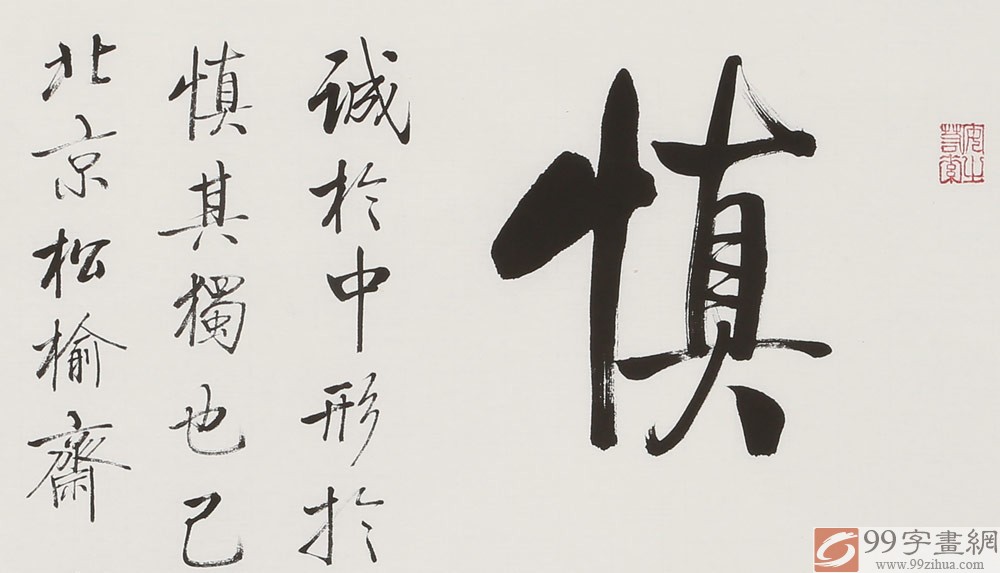 慎
誠於中形於
慎其獨也己
北京松榆齋
99字畫網
www.99zihua.com